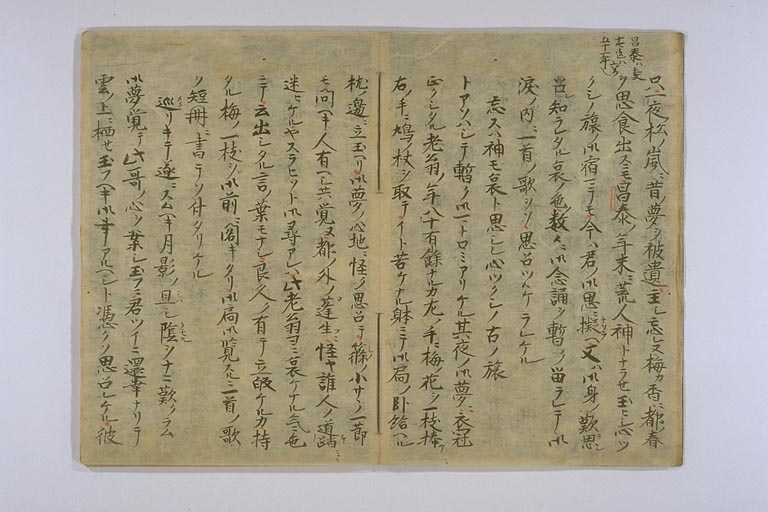 昌泰ハ
只一夜松ノ嵐ニ昔ノ夢ヲ被遺主シ忘レヌ梅カ香ニ都ノ春
ヲ思食出スニモ昌泰ノ年末ニ荒人神トナラセ玉ヒシ心ツ
クシノ旅ノ御宿ニテモ今ハ君ノ御思ニ擬ヘ又ハ御身ノ歎ニ思
召知ラレタル哀ノ色数々ニ御念誦ヲ暫ク留ラレテ御
涙ノ内ニ一首ノ歌ヲソ思召ツケラレケル
忘スハ神モ哀ト思シレ心ツクシノ古ノ旅
トアソハシテ暫ク御マトロミアリケル其夜ノ御夢ニ衣冠
正クシタル老翁ノ年八十有餘ナルカ左ノ手ニ梅ノ花ヲ一枝捧ケ
右ノ手ニ鳩ノ杖ヲ取テイト苦ケナル躰ニテ御局ノ臥給ヘル
枕ノ邊ニ立玉ヘリ御夢心地ニ怪ク思召テ篠ノ小サヽノ一節
モ問ヘキ人有トモ覚ヌ都ノ外ノ蓬生ニ怪ヤ誰人ノ道踏
迷ヒケルヤスラヒソト御尋アレハ此老翁ヨニ哀ケナル気色
ニテ云出シタル言ノ葉モナシ良久ク有テ立皈ケルカ持
タル梅ノ一枝ヲ御前ニ閣キタリ御局御覧スルニ一首ノ歌
ヲ短冊ニ書テソ付タリケル
巡リキテ遂ニスムヘキ月影ノ且シ陰ヲナニ歎クラム
御夢覚テ此哥ノ心ヲ案シ玉フニ君ツイニ還幸ナリテ
雲ノ上ニ栖セ玉フヘキ御事アルヘシト憑クソ思召レケル彼